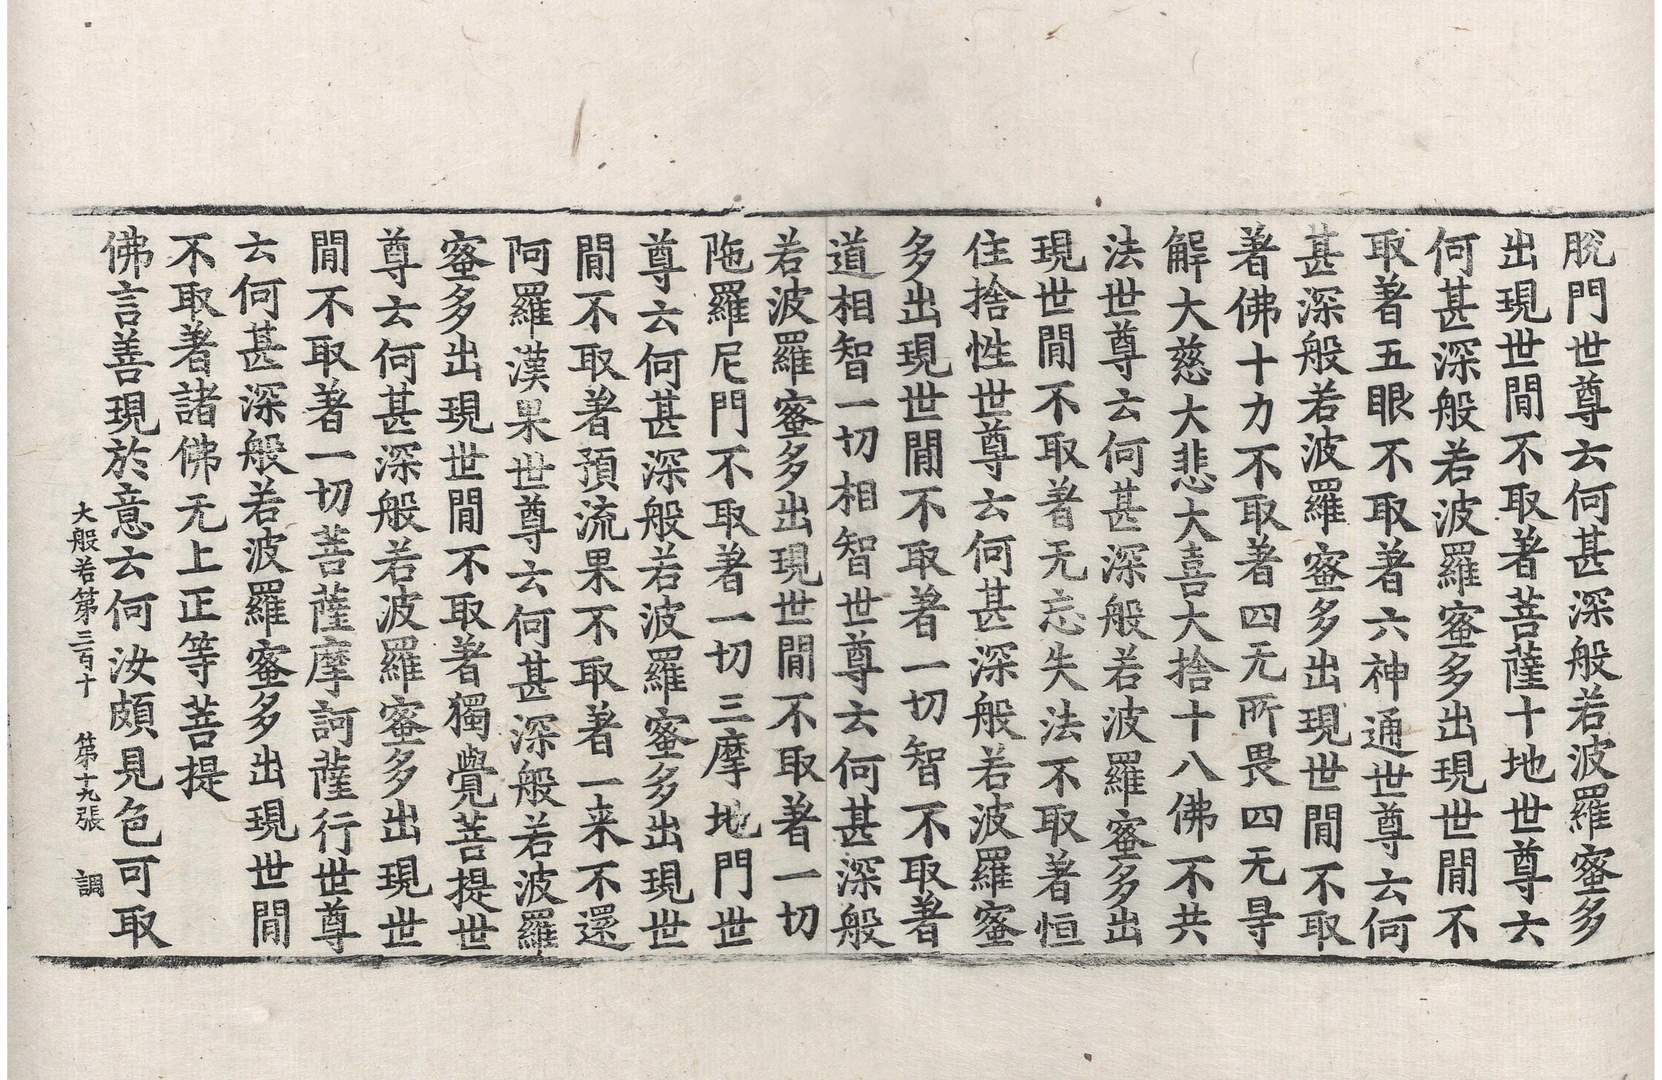 脫門世尊云何甚深般若波羅蜜多
出現世間不取著菩薩十地世尊云
何甚深般若波羅蜜多出現世間不
取著五眼不取著六神通世尊云何
甚深般若波羅蜜多出現世間不取
著佛十力不取著四无所畏四无㝵
解大慈大悲大喜大捨十八佛不共
法世尊云何甚深般若波羅蜜多出
現世間不取著无忘失法不取著恒
住捨性世尊云何甚深般若波羅蜜
多出現世間不取著一切智不取著
道相智一切相智世尊云何甚深般
若波羅蜜多出現世間不取著一切
陁羅尼門不取著一切三摩地門世
尊云何甚深般若波羅蜜多出現世
間不取著預流果不取著一来不還
阿羅漢果世尊云何甚深般若波羅
蜜多出現世間不取著獨覺菩提世
尊云何甚深般若波羅蜜多出現世
間不取著一切菩薩摩訶薩行世尊
云何甚深般若波羅蜜多出現世間
不取著諸佛无上正等菩提
佛言善現於意云何汝頗見色可取
大般若第三百十 第十九張 調